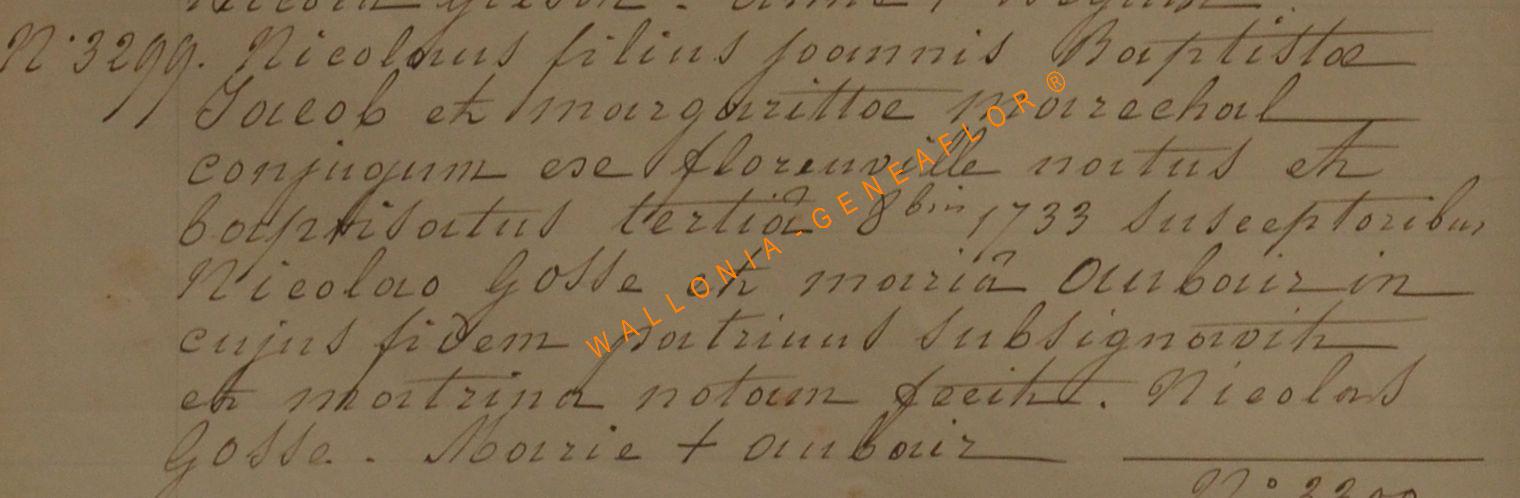 N° 3299. Nicolaus filius joannis Baptistae
Jacob et margarittae Marechal
conjugum ex florenville natus et
baptisatus tertiâ 8bris 1733 susceptoribus
Nicolao Gosse et mariâ Aubair in
cujus fidem patrinus subsignavit
et matrina notam fecit. Nicolas
Gosse. Marie + aubair
WALLONIA-GENEAFLOR®